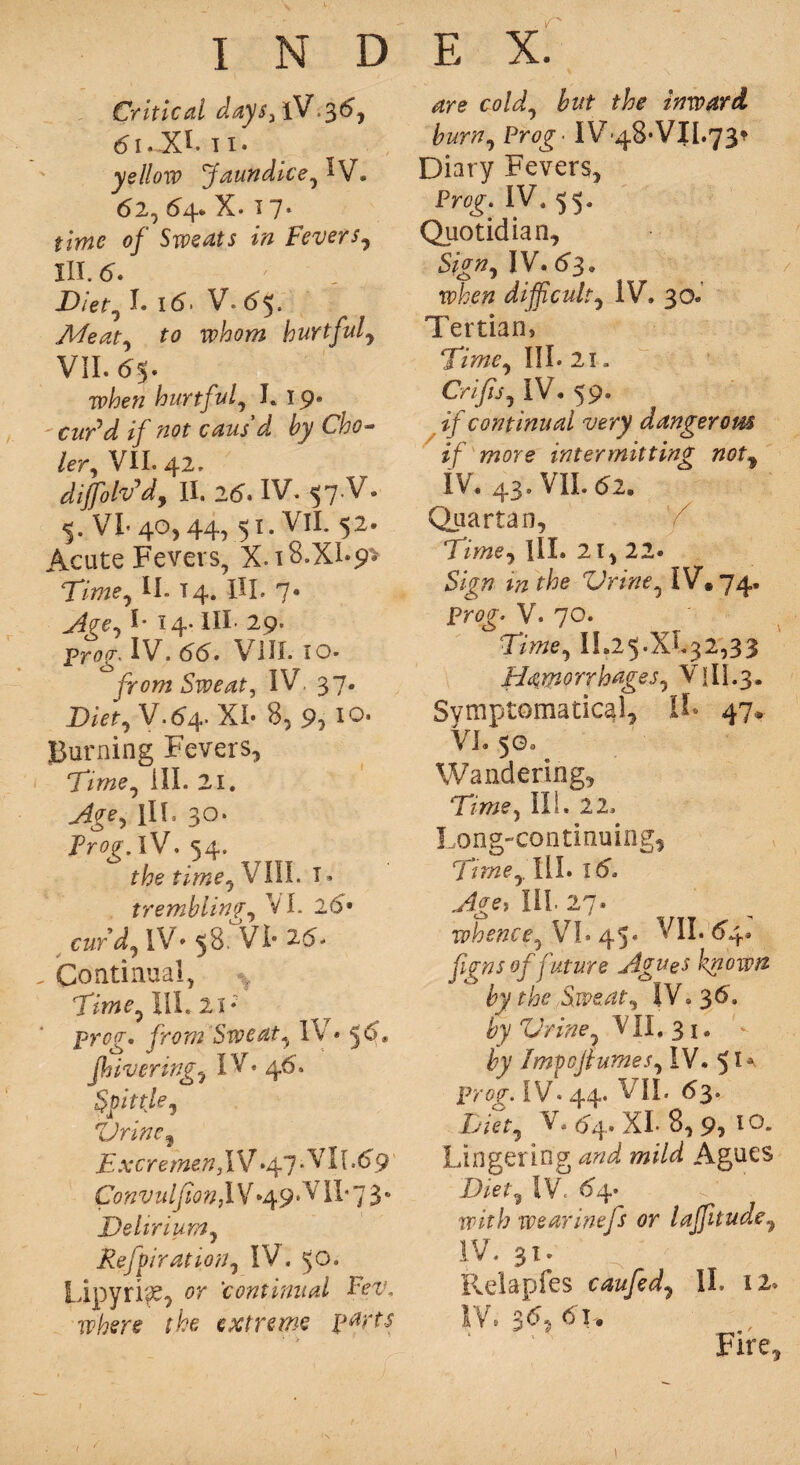 INDEX.
Critical days, IV. 36,
61. XI. 11.
yellow Jaundice, IV.
62, 64. X. 17.
time of Sweats in Fevers,
III. 6.
Diet, I. 16. V. 65.
Meat, to whom hurtful,
VII. 65.
when hurtful, I. 19.
cur'd if not caus'd by Cho-
ler, VII. 42.
dissolv'd, II. 26. IV. 57. V.
5. VI. 40, 44, 51. VII. 52.
Acute Fevers, X. 18. XI. 9.
Time, II. 14. III. 7.
Age, I. 14. III. 29.
prog. IV. 66. VIII. 10.
from Sweat, IV. 37.
Diet, V. 64. XI. 8, 9, 10.
Burning Fevers,
Time, III. 21.
Age, III. 30.
Prog. IV. 54.
the time, VIII. 1.
trembling, VI. 26.
cur'd, IV. 58. VI. 26.
Continual,
Time, III. 21.
prog. from Sweat, IV. 56.
ſhivering, IV. 46.
Spittle,
Urine,
Excremen, IV. 47. VII. 69
Convulſion, IV. 49. VII. 73.
Delirium,
Reſpiration, IV. 50.
Lipyriæ, or continual Fev.
where the extreme parts
are cold, but the inward
burn, Prog. IV. 48. VII. 73.
Diary Fevers,
Prog. IV. 55.
Quotidian,
Sign, IV. 63.
when difficult, IV. 30.
Tertian,
Time, III. 21.
Criſis, IV. 59.
if continual very dangerous
if more intermitting not,
IV. 43. VII. 62.
Quartan,
Time, III. 21, 22.
Sign in the Urine, IV. 74.
prog. V. 70.
Time, II. 25. XI. 32, 33
Hæmorrhages, VIII. 3.
Symptomatical, II. 47.
VI. 50.
Wandering,
Time, III. 22.
Long-continuing,
Time, III. 16.
Age, III. 27.
whence, VI. 45. VII. 64.
ſigns of future Agues known
by the Sweat, IV. 36.
by Urine, VII. 31.
by Impoſtumes, IV. 51.
prog. IV. 44. VII. 63.
Diet, V. 64. XI. 8, 9, 10.
Lingering and mild Agues
Diet, IV. 64.
with wearineſs or laſſitude,
IV. 31.
Relapſes cauſed, II. 12.
IV. 36, 61.
Fire,